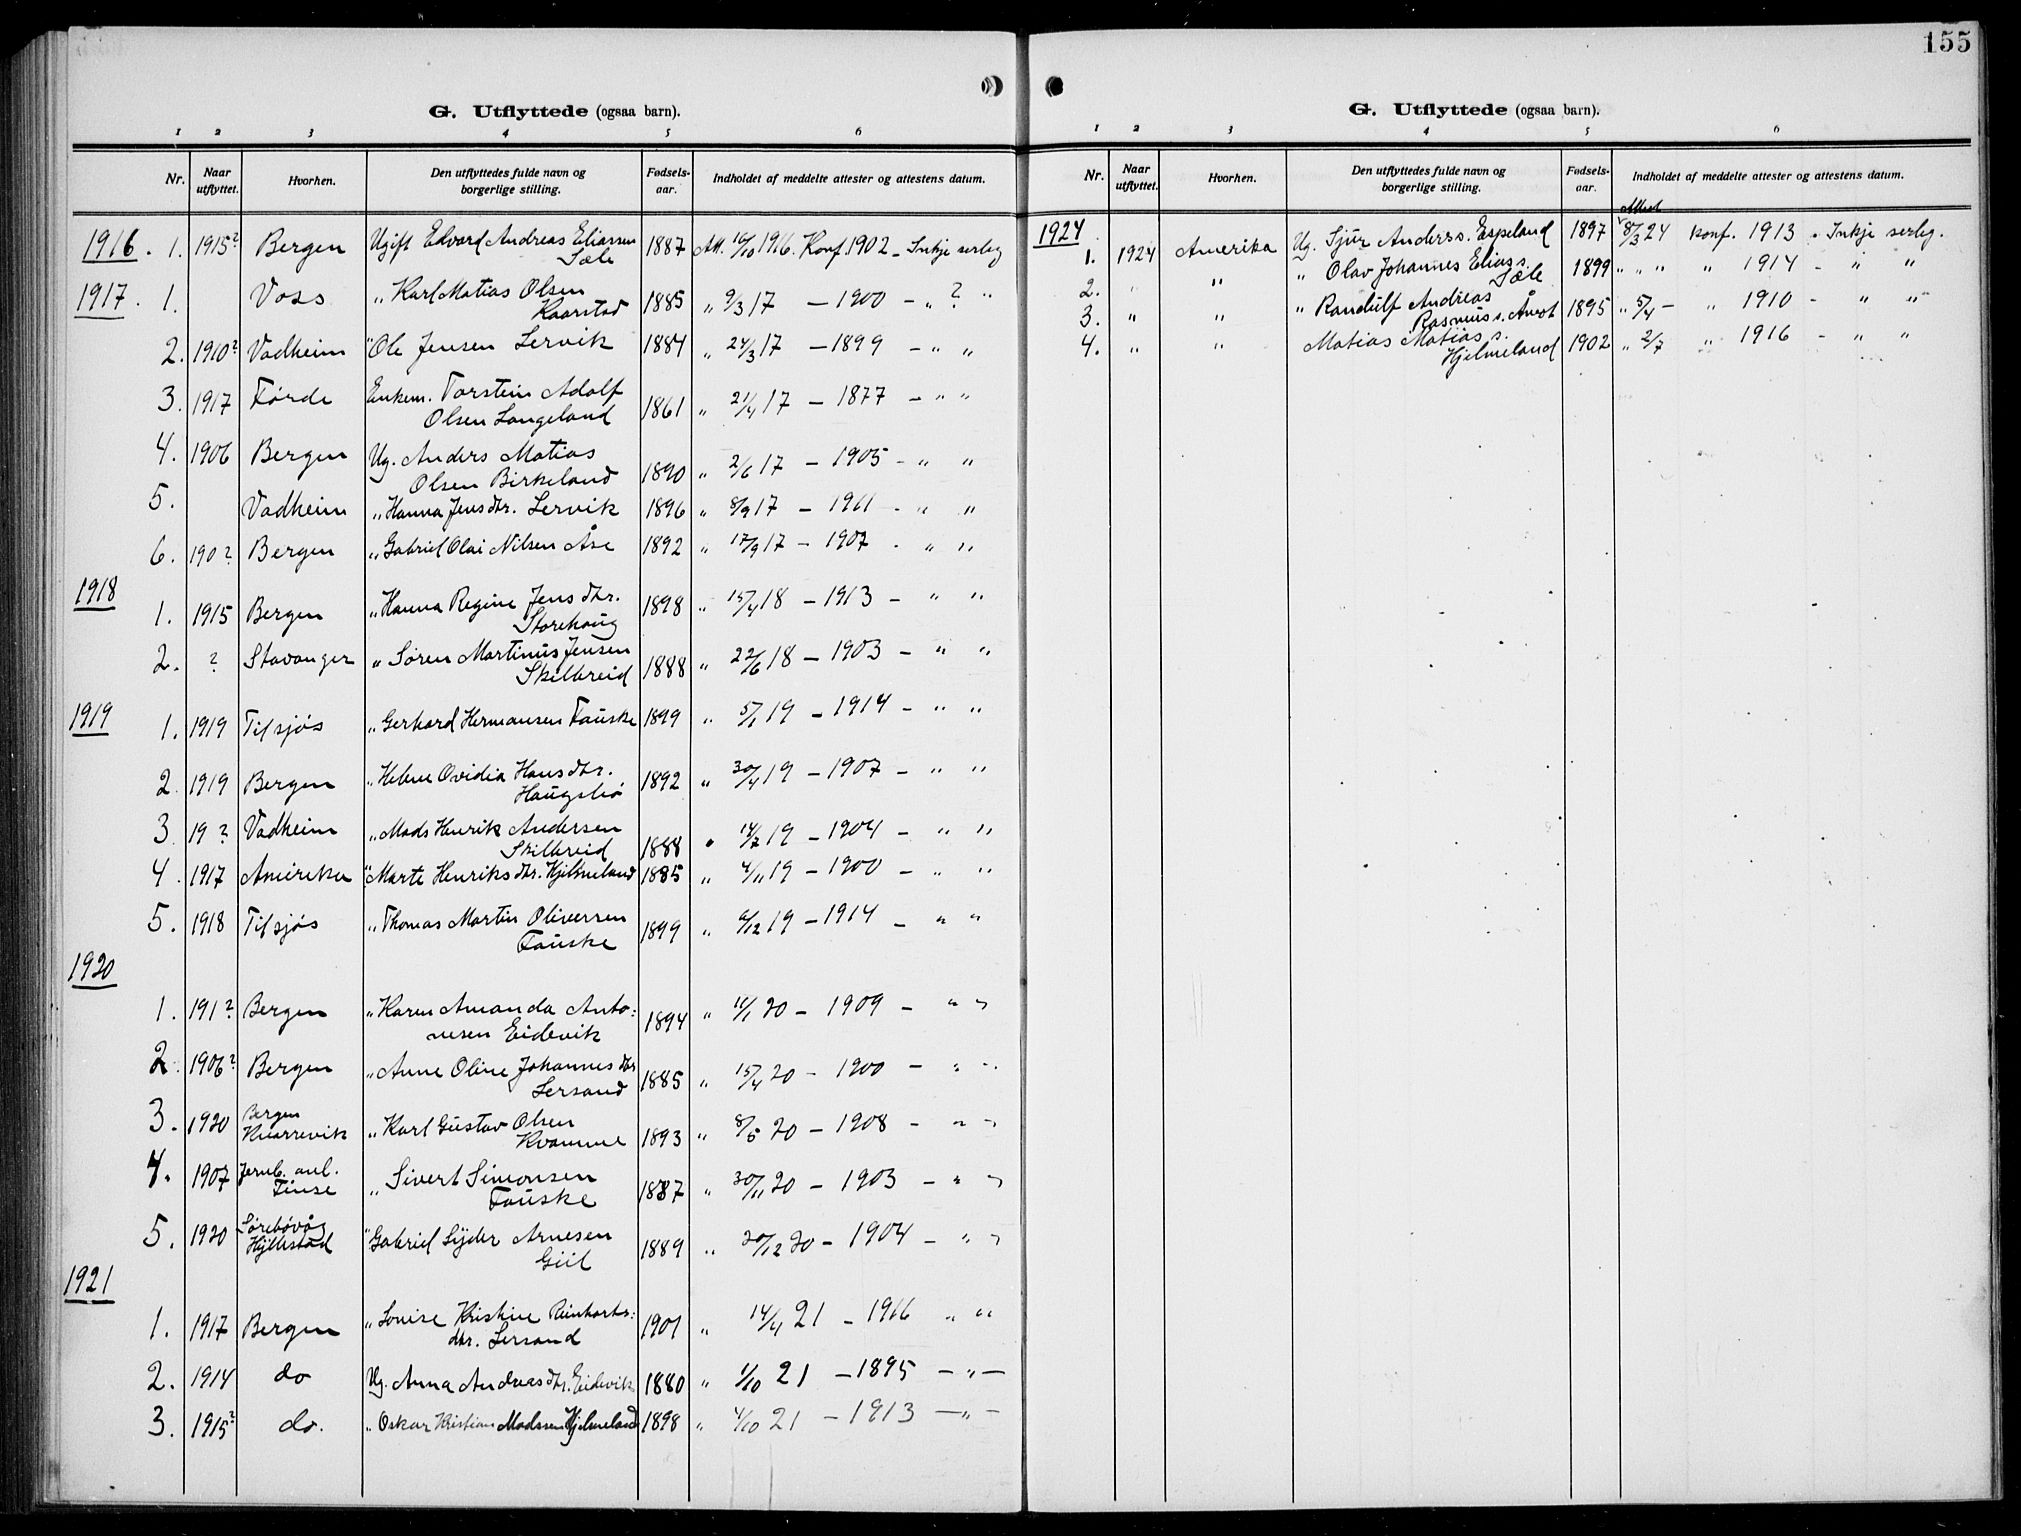 G. Utflyttede (ogsaa barn).
1 2 3 4 5 6
Nr. Naar utflyttet. Hvorhen. Den utflyttedes fulde navn og borgerlige stilling. Fødsels-aar. Indholdet af meddelte attester og attestens datum.
1916. 1. 1915? Bergen Ugift Edvard Andreas Eliassen 1887 Att. 16/10 1916. Konf. 1902 - Inkje serleg
Sæle
1917. 1. Voss " Karl Matias Olsen 1885 " 9/3 17 - 1900 - " ? "
Kaarstad
2. 1910? Vadheim " Ole Jensen Lervik 1884 " 24/3 17 - 1899 - " "
3. 1917 Førde Enkem. Torstein Adolf
Olsen Langeland 1861 " 21/4 17 - 1877 - " "
4. 1906 Bergen Ug. Anders Matias
Olsen Birkeland 1890 " 2/6 17 - 1905 - " "
5. Vadheim " Hanna Jensdtr. Lervik 1896 " 8/9 17 - 1911 - " "
6. 190? Bergen " Gabriel Olai Nilsen Åse 1892 " 17/9 17 - 1907 - " "
1918
1. 1915 Bergen " Hanna Regine Jensdtr. 1898 " 15/4 18 - 1913 - " "
Storehaug
2. ? Stavanger " Søren Martinus Jensen 1888 " 22/6 18 - 1903 - " "
Skilbreid
1919
1. 1919 Tilsjøs " Gerhard Hermansen Fauske 1899 " 5/1 19 - 1914 - " "
2 1919 Bergen " Helene Ovidia Hansdtr. 1892 " 30/4 19 - 1907 - " "
Haugsbø
3 19? Vadheim " Mads Henrik Andersen
Skilbreid 1888 " 14/7 19 - 1904 - " "
4. 1917 Amerika " Marte Henriksdtr. Hjelmeland 1885 " 4/11 19 - 1900 - " "
5. 1918 Tilsjøs " Thomas Martin Oliversen
Fauske 1899 " 6/12 19 - 1914 - " "
1920
1. 191? Bergen " Karen Amanda Anto:
nesen Eidevik 1894 " 11/1 20 - 1909 - " "
2. 1906? Bergen " Anne Oline Johannesdtr
Lersand 1885 " 15/4 20 - 1900 - " "
3. 1920 Bergen
Knarrevik " Karl Gustav Olsen
Kvamme 1893 " 8/5 20 - 1908 - " "
4. 1907 Jernb. anl.
Finse " Sivert Simonsen
Fauske 1887 " 30/11 20 - 1903 - " "
5. 1920 Sørebøvåg
Hyllestad " Gabriel Lyder Arnesen
Giil 1889 " 20/12 20 - 1904 - " "
1921
1. 1917 Bergen " Lovise Kristine Reinharts:
dtr. Lersand 1901 " 14/4 21 - 1916 " "
2. 1914 do Ug. Anna Andreasdtr. Eidevik 1880 " 1/10 21 - 1895 - " -
3. 1915? do. " Oskar Kristian Madssen Hjelmeland 1898 " 4/10 21 - 1913 - " -
155
G. Utflyttede (ogsaa barn).
1 2 3 4 5 6
Nr. Naar utflyttet. Hvorhen. Den utflyttedes fulde navn og borgerlige stilling. Fødsels-aar. Indholdet af meddelte attester og attestens datum.
1924 Attest
1. 1924 Amerika Ug. Sjur Anders s. Espeland 1897 8/3 24 konf. 1913 - Inkje serleg.
2. " " " Olav Johannes Elias s. 1899 " " " " 1914 - " "
Sæle
3. " " " Randulf Andreas
Rasmus s. Årvot 1895 " 5/4 - " 1910 - " "
4. " " Matias Matias s.
Hjelmeland 1902 " 2/7 " 1916 - " "